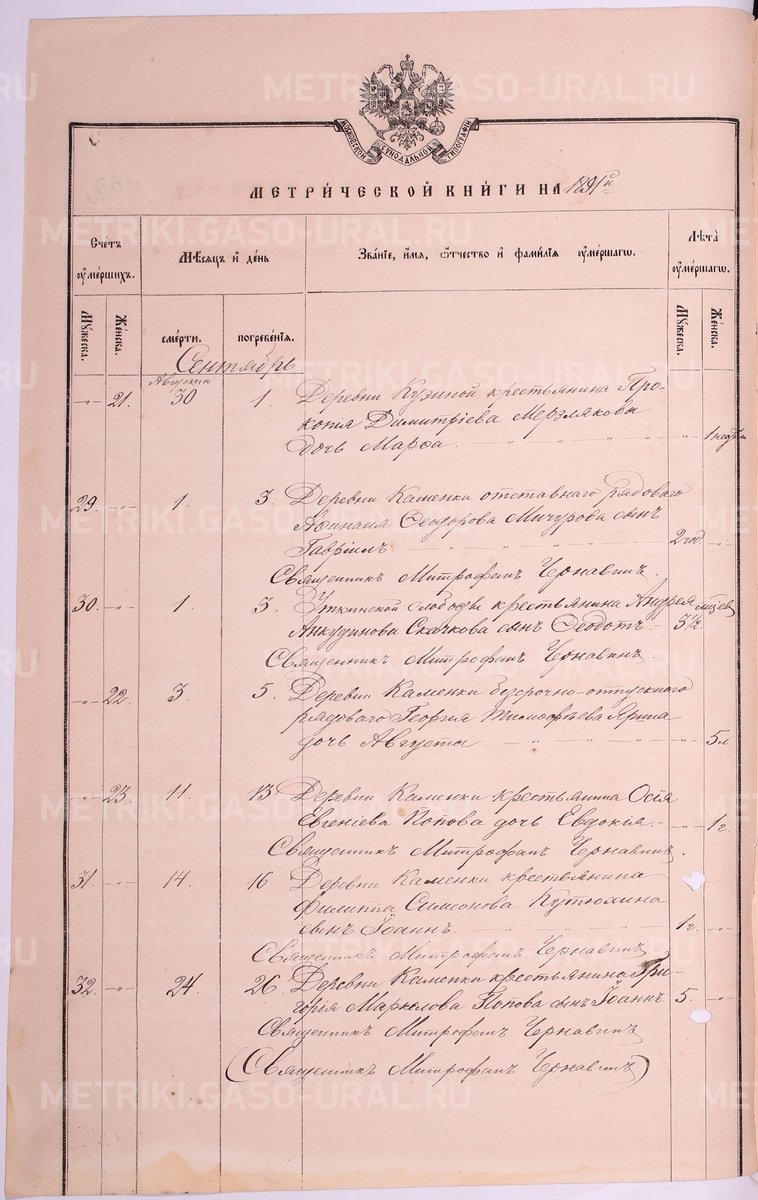 МОСКОВСКОЙ СУНОДАЛЬНОЙ ТИПОГРАФІИ
МЕТРИЧЕСКОЙ КНИГИ НА 1891й
Счетъ умершихъ.
Мѣсяцъ и день
Званіе, имя, отчество и фамилія умершаго.
Лѣта умершаго.
Мужеска. Женска. смерти. погребенія. Мужеска. Женска.
Сентябрь
Августа
„ 21. 30 1. Деревни Кузиной крестьянина Про-
копія Димитріева Мерзлякова
дочь Марѳа. „ 1 недѣли
29. „ 1. 3. Деревни Каменки отставнаго рядоваго
Аѳинасія Ѳеодорова Мичурова сынъ
Гавріилъ. 2 год. „
Священникъ Митрофанъ Чернавинъ.
30. „ 1. 3. Уткинской слободы крестьянина Андрея
Анкудинова Скачкова сынъ Ѳеодотъ. 5 1/2
Священникъ Митрофанъ Чернавинъ.
„ 22. 3. 5. Деревни Каменки безсрочно-отпускнаго
рядоваго Георгія Тимоѳѣева Ярина
дочь Августа. „ 5 л.
„ 23. 11. 13. Деревни Каменки крестьянина Осія
Евгеніева Попова дочь Евдокія. „ 1 г.
Священникъ Митрофанъ Чернавинъ.
31. „ 14. 16 Деревни Каменки крестьянина
Филиппа Симеонова Кутюхина
сынъ Іоаннъ. 1 г. „
Священникъ Митрофанъ Чернавинъ
32. „ 24. 26. Деревни Каменки крестьянина Гри-
горія Маркелова Попова сынъ Іоаннъ 5. „
Священникъ Митрофанъ Чернавинъ
(Священникъ Митрофанъ Чернавинъ)
METRIKI.GASO-URAL.RU